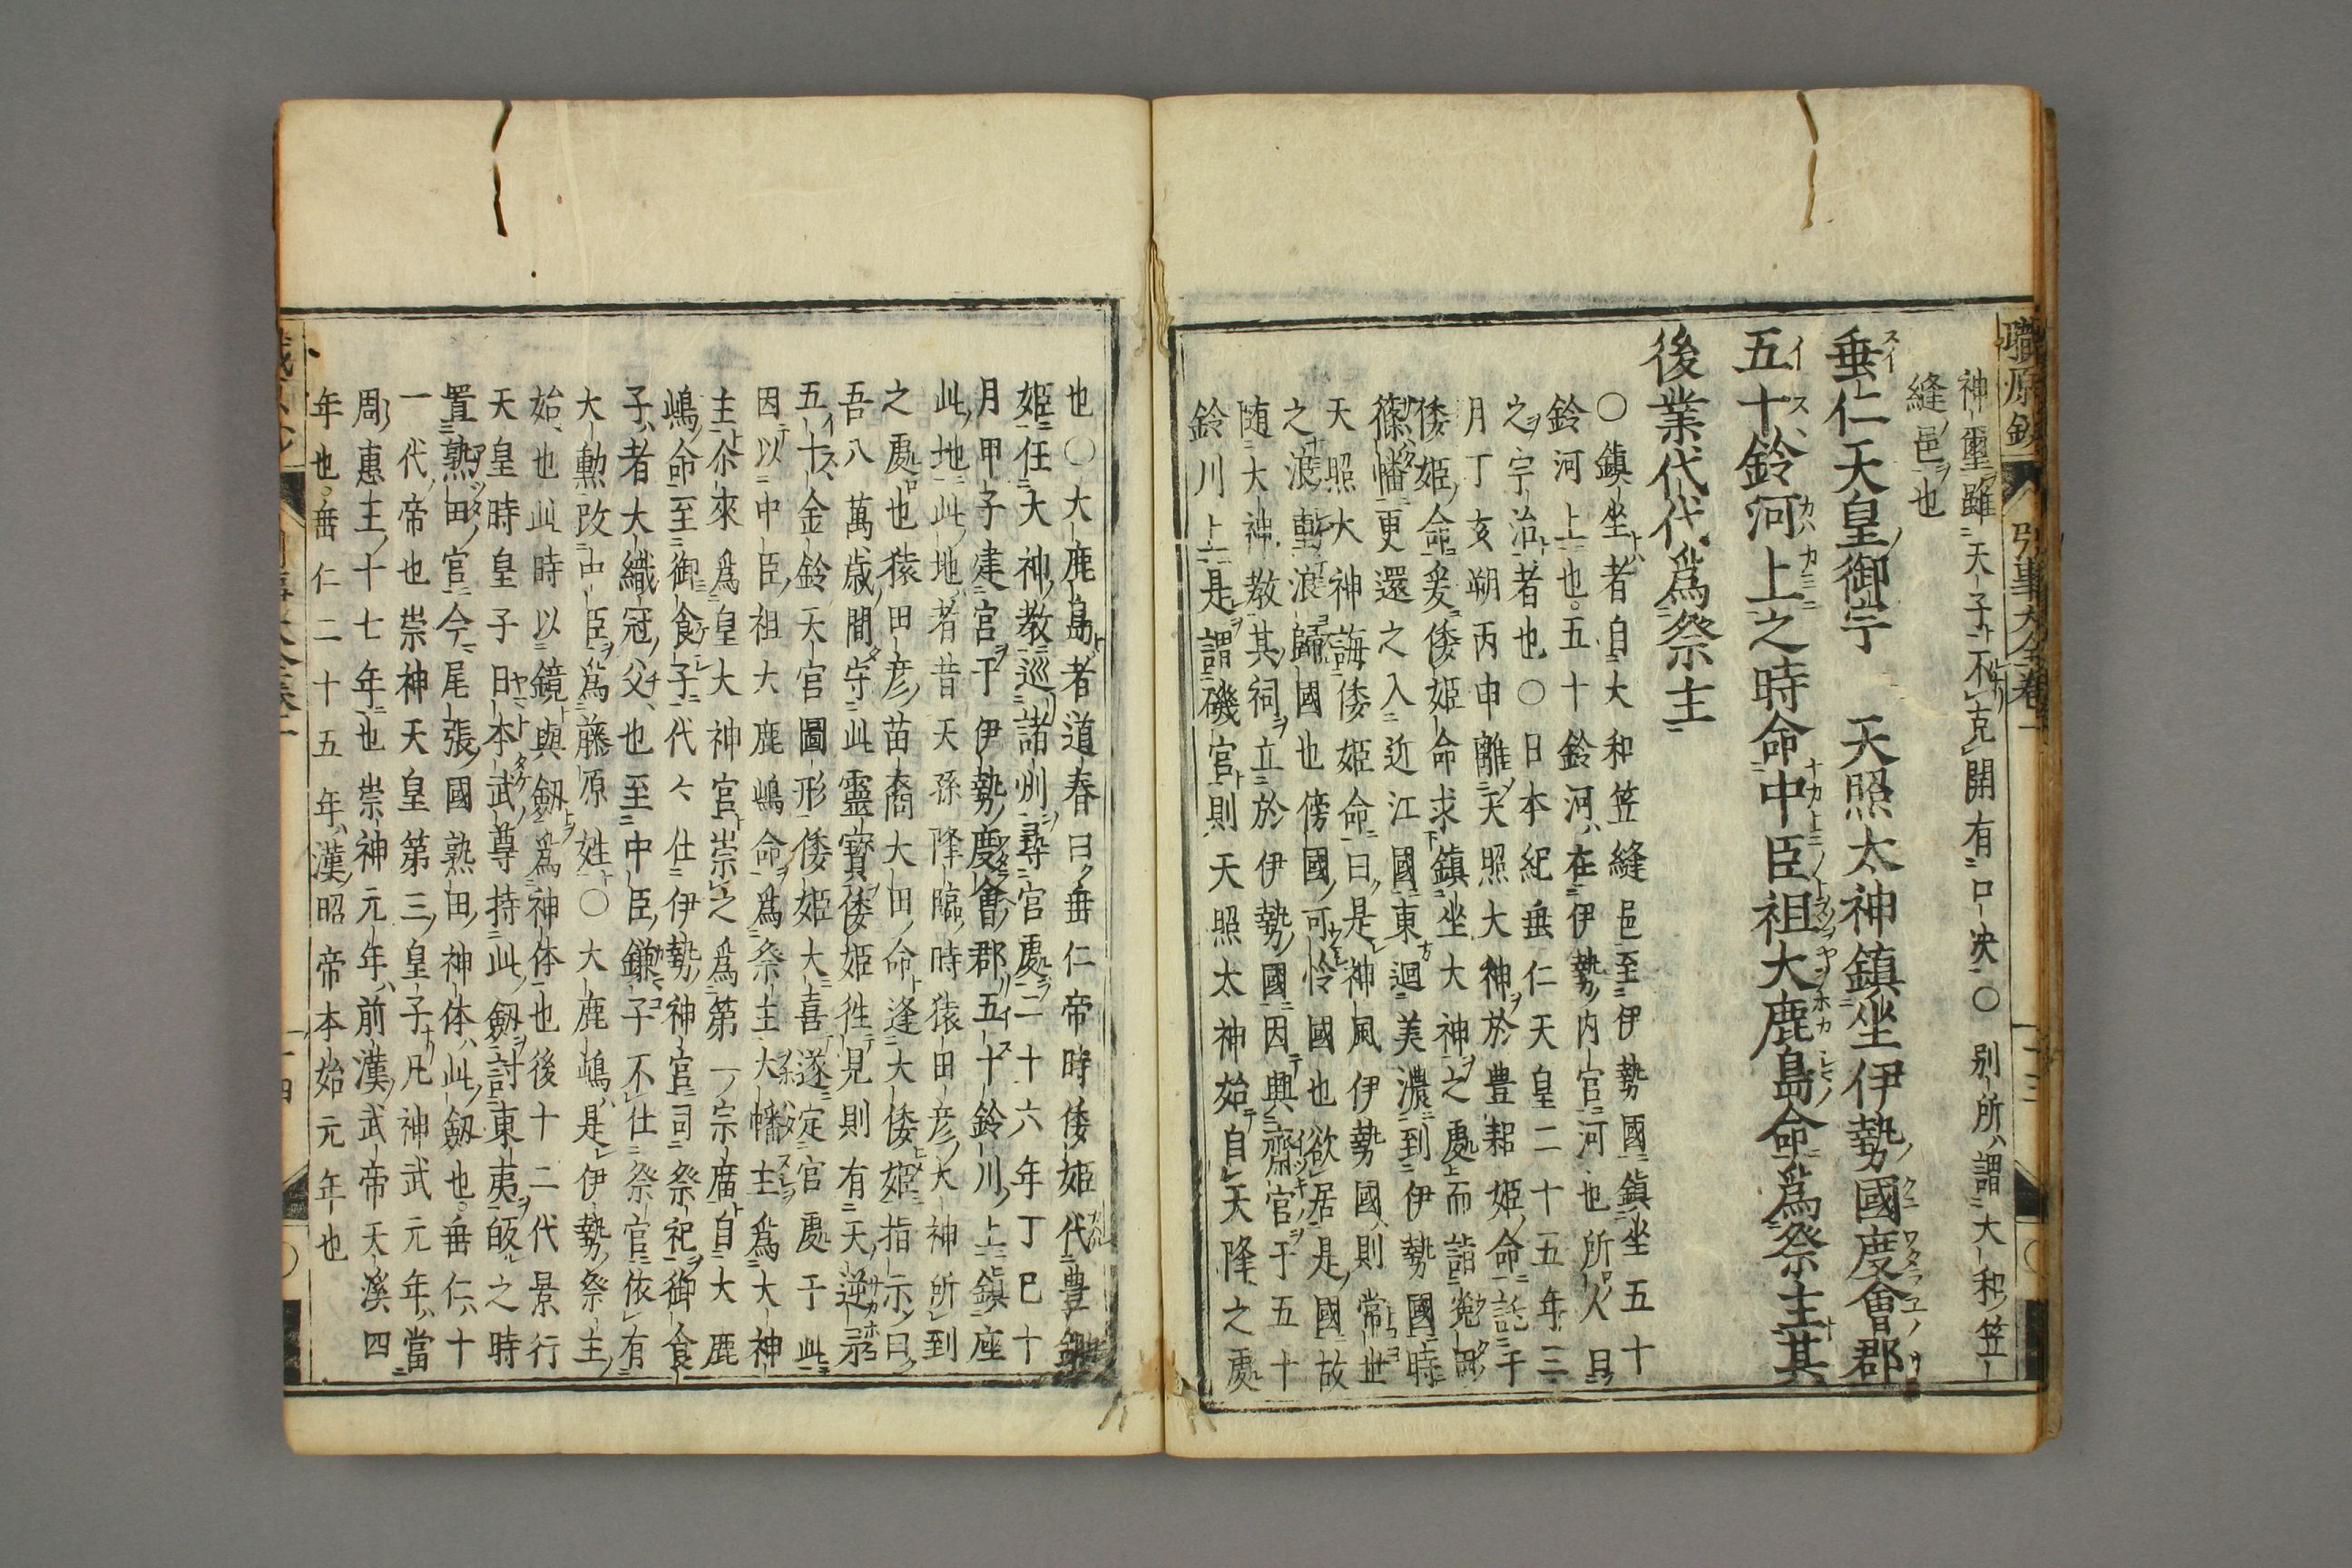 職原鈔 引事大全卷一
神璽雖天子不克開有口决〇別所謂大和笠
縫邑也
垂仁天皇御宇 天照太神鎮坐伊勢國度會郡
五十鈴河上之時命中臣祖大鹿島命爲祭主其
後業代代爲祭主
〇鎮坐者自大和笠縫邑至伊勢國鎮坐五十
鈴河上也五十鈴河在伊勢内宮河也所人曰
之宇治者也〇日本紀垂仁天皇二十五年三
月丁亥朔丙申離天照大神於豊耜姫命託于
倭姫命爰倭姫命求鎮坐大神之處而詣菟田
篠幡更還之入近江國東迴美濃到伊勢國時
天照大神誨倭姫命曰是神風伊勢國則常世
之浪重浪歸國也傍國可怜國也欲居是國故
随大神教其祠立於伊勢國因興齋宮于五十
鈴川上是謂磯宮則天照太神始自天降之處
也〇大鹿島者道春曰垂仁帝時倭姫代豊鋤
姫任大神教巡諸州尋宮處二十六年丁巳十
月甲子建宮于伊勢度會郡五十鈴川上鎮座
此地此地者昔天孫降臨時猿田彦大神所到
之處也猿田彦苗裔大田命逢大倭姫指示曰
吾八萬歳間守此靈寳倭姫徃見則有天逆
五十金鈴天宮圖形倭姫大喜遂定宮處于此
因以中臣祖大鹿嶋命爲祭主大幡主爲大神
主尒來爲皇大神宮崇之爲第一宗廣自大鹿
嶋命至御食子代々仕伊勢神宮司祭祀御食
子者大織冠父也至中臣鎌子不仕祭官依有
大勲改中臣爲藤原姓〇大鹿嶋是伊勢祭主
始也此時以鏡與劔爲神体也後十二代景行
天皇時皇子日本武尊持此劔討東夷皈之時
置熱田宮今尾張國熱田神体此劔也垂仁十
一代帝也崇神天皇第三皇子凡神武元年當
周惠王十七年也崇神元年前漢武帝天漢四
年也垂仁二十五年漢昭帝本始元年也